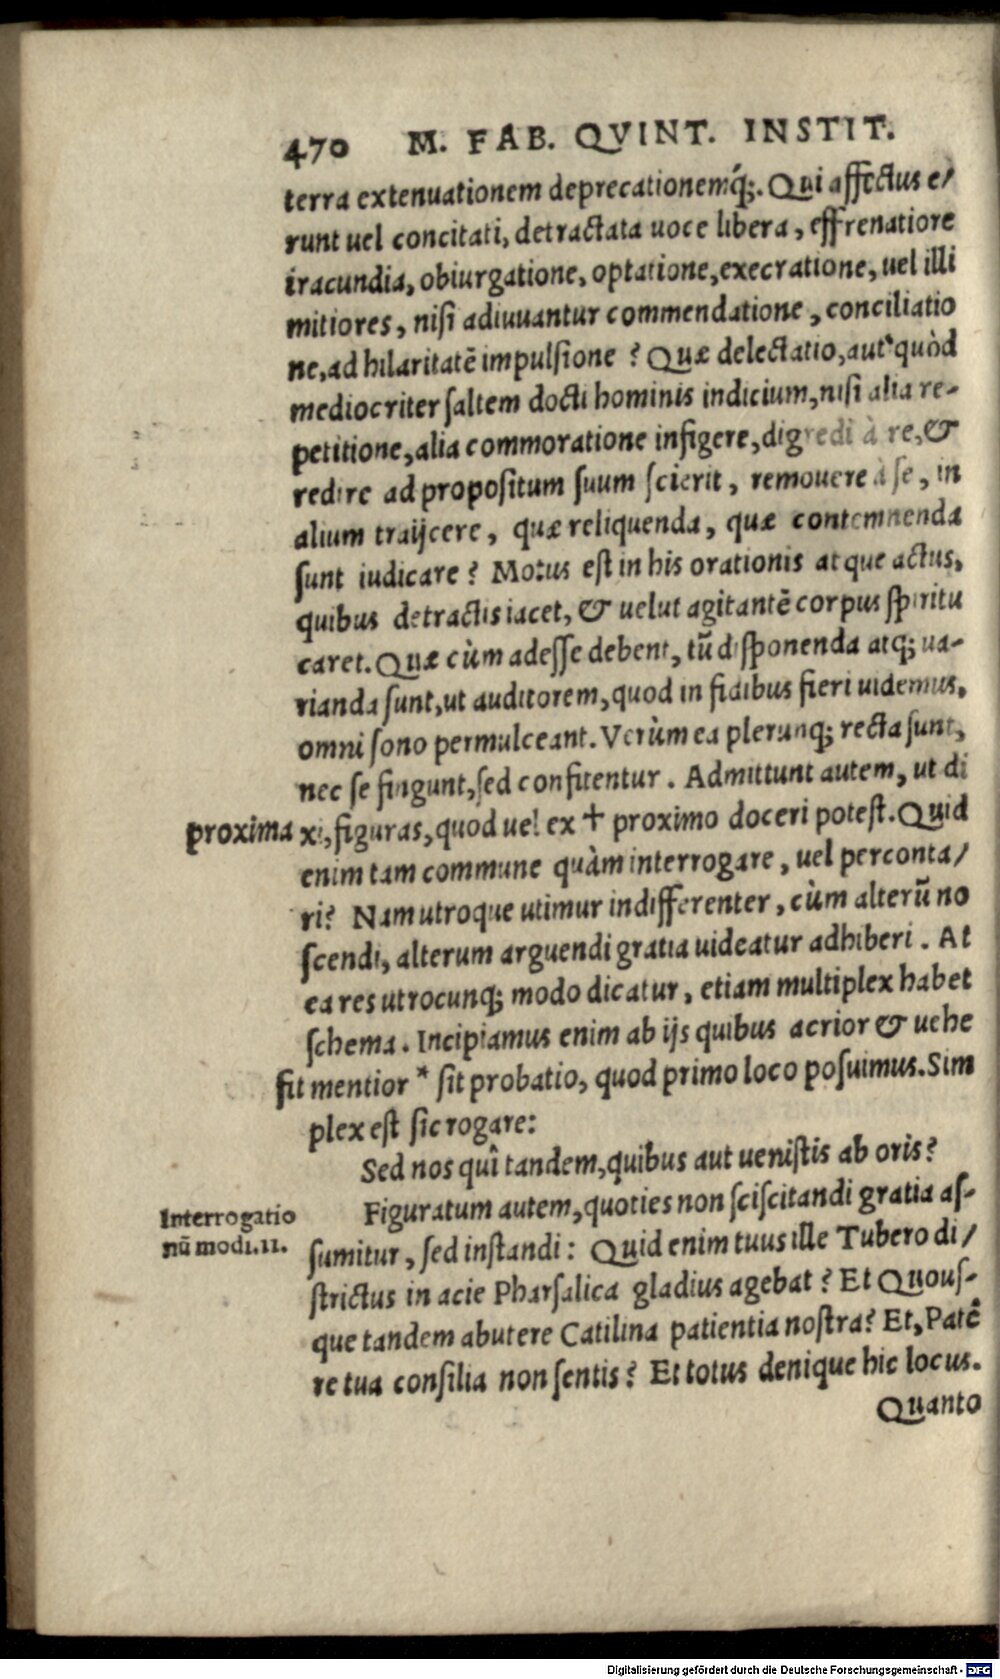 470 M. FAB. QVINT. INSTIT.
terra extenuationem deprecationemq́;. Qui affectus e/
runt uel concitati, detractata uoce libera, effrenatiore
iracundia, obiurgatione, optatione, execratione, uel illi
mitiores, nisi adiuuantur commendatione, conciliatio
ne, ad hilaritatē impulsione? Quæ delectatio, aut quòd
mediocriter saltem docti hominis indicium, nisi alia re-
petitione, alia commoratione infigere, digredi à re, &
redire ad propositum suum scierit, remouere à se, in
alium traijcere, quæ reliquenda, quæ contemnenda
sunt iudicare? Motus est in his orationis atque actus,
quibus detractis iacet, & uelut agitantē corpus spiritu
caret. Quæ cùm adesse debent, tū disponenda atq; ua-
rianda sunt, ut auditorem, quod in fidibus fieri uidemus,
omni sono permulceant. Verùm ea plerunq; recta sunt,
nec se fingunt, sed confitentur. Admittunt autem, ut di
proxima xi, figuras, quod uel ex + proximo doceri potest. Quid
enim tam commune quàm interrogare, uel perconta/
ri? Nam utroque utimur indifferenter, cùm alterū no
scendi, alterum arguendi gratia uideatur adhiberi. At
ea res utrocunq; modo dicatur, etiam multiplex habet
schema. Incipiamus enim ab ijs quibus acrior & uehe
fit mentior * sit probatio, quod primo loco posuimus. Sim
plex est sic rogare:
Sed nos quî tandem, quibus aut uenistis ab oris?
Interrogatio Figuratum autem, quoties non sciscitandi gratia as-
nū modi. II. sumitur, sed instandi: Quid enim tuus ille Tubero di/
strictus in acie Pharsalica gladius agebat? Et Quous-
que tandem abutere Catilina patientia nostra? Et, Patē
re tua consilia non sentis? Et totus denique hic locus.
Quanto
Digitalisierung gefördert durch die Deutsche Forschungsgemeinschaft - DFG